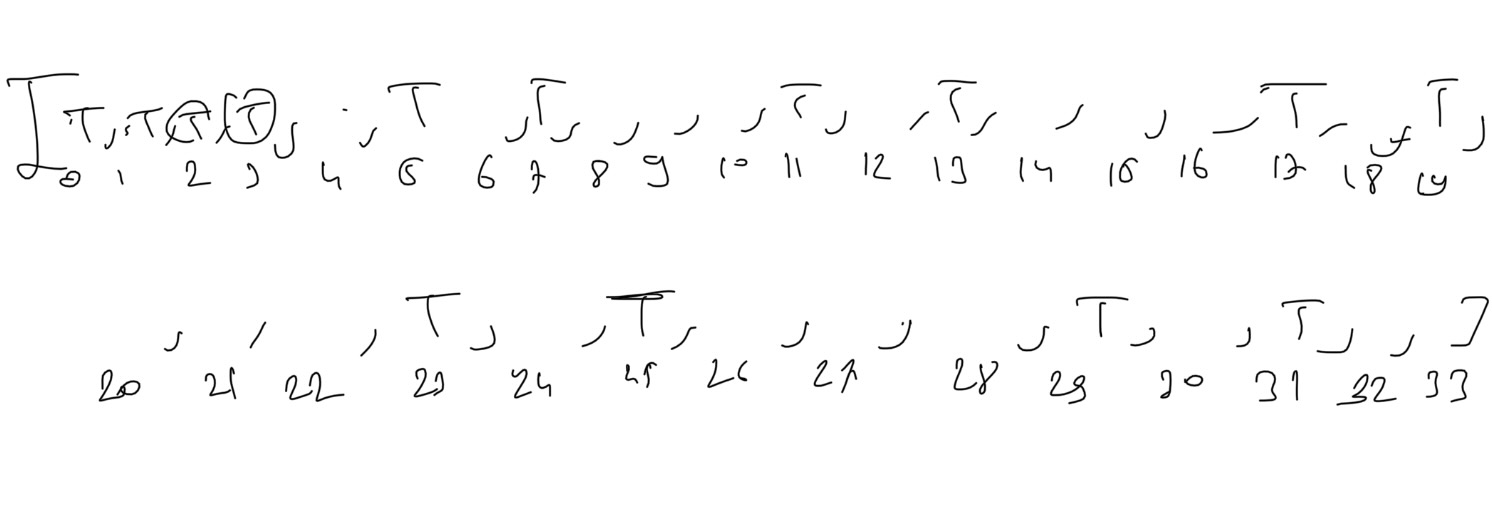 [T, T, T, T, , T, , T, , , , T, , T, , , , T, , T,
0 1 2 3 4 5 6 7 8 9 10 11 12 13 14 15 16 17 18 19
, , , T, , T, , , , T, , T, , ]
20 21 22 23 24 25 26 27 28 29 30 31 32 33